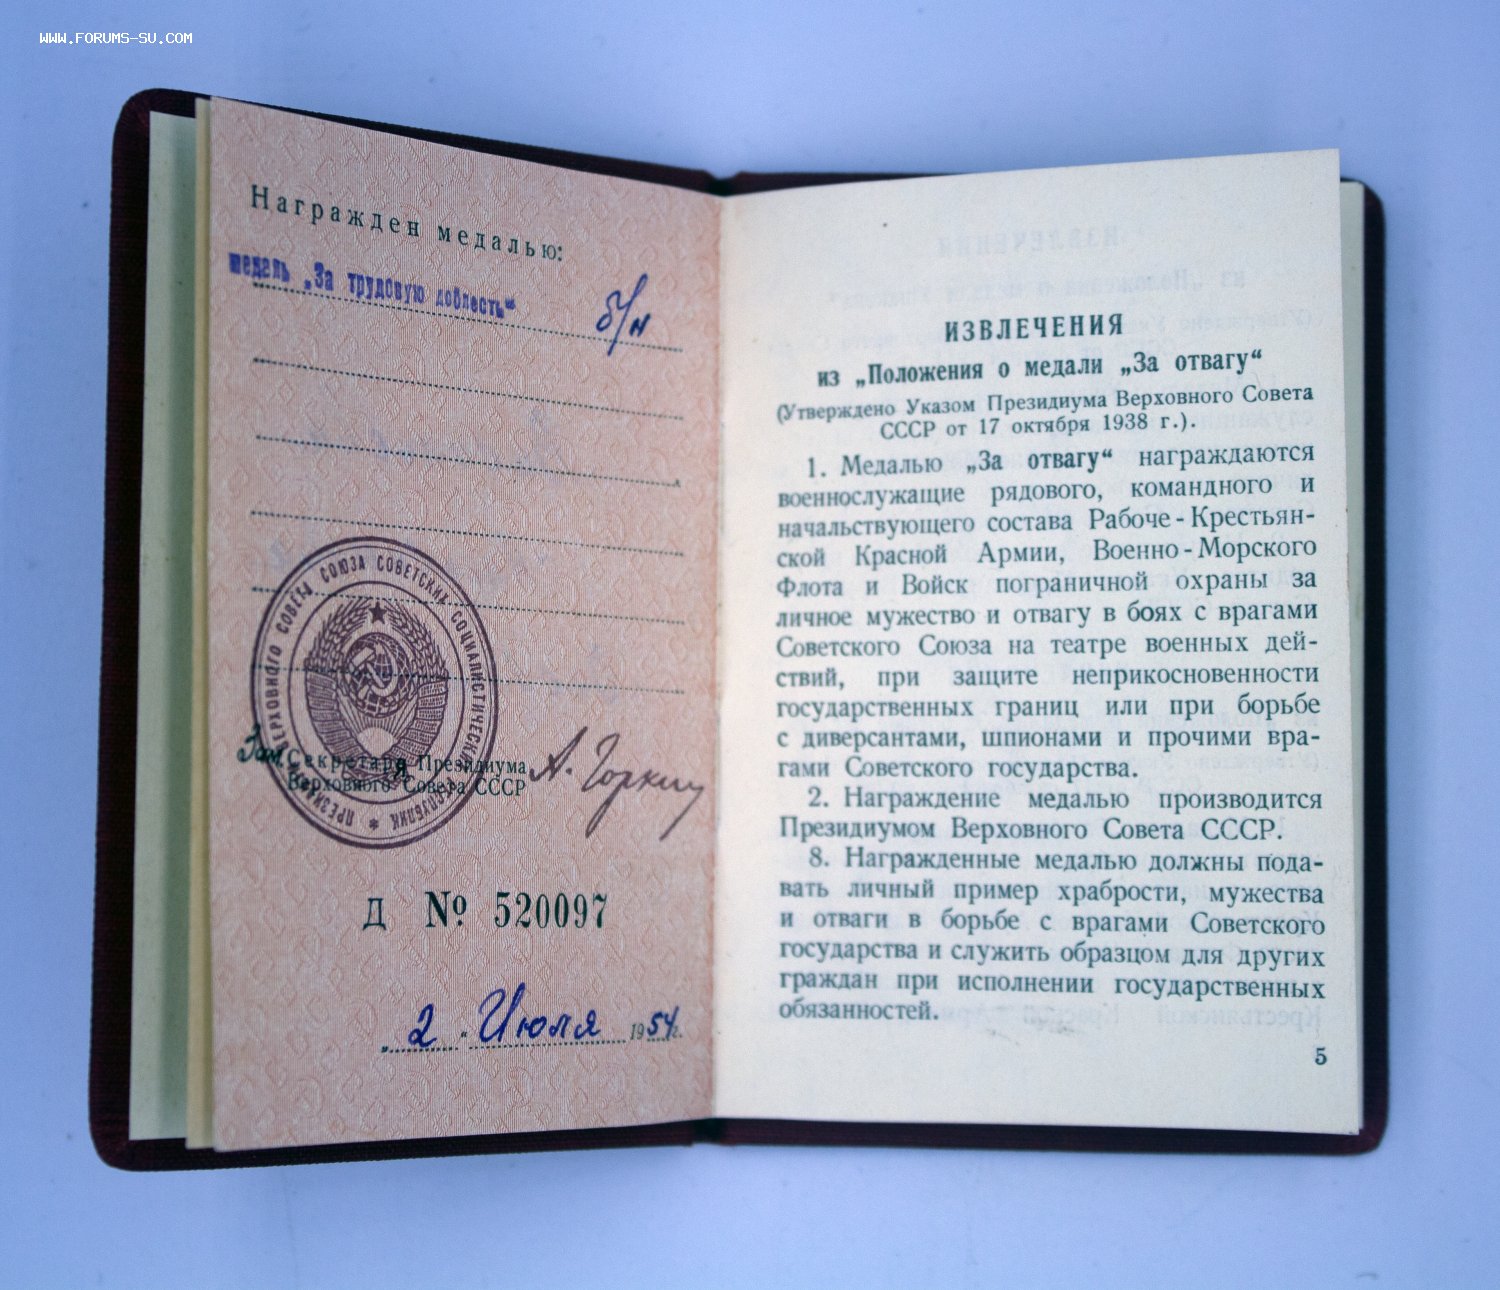 WWW.FORUMS-SU.COM
Награжден медалью:
медаль „За трудовую доблесть“ б/н
ПРЕЗИДИУМ ВЕРХОВНОГО СОВЕТА СОЮЗА СОВЕТСКИХ СОЦИАЛИСТИЧЕСКИХ РЕСПУБЛИК *
Зам. Секретаря Президиума
Верховного Совета СССР
А. Горкин
Д № 520097
„ 2 “ Июля 1954 г.
ИЗВЛЕЧЕНИЯ
из „Положения о медали „За отвагу“
(Утверждено Указом Президиума Верховного Совета
СССР от 17 октября 1938 г.).
1. Медалью „За отвагу“ награждаются
военнослужащие рядового, командного и
начальствующего состава Рабоче-Крестьян-
ской Красной Армии, Военно-Морского
Флота и Войск пограничной охраны за
личное мужество и отвагу в боях с врагами
Советского Союза на театре военных дей-
ствий, при защите неприкосновенности
государственных границ или при борьбе
с диверсантами, шпионами и прочими вра-
гами Советского государства.
2. Награждение медалью производится
Президиумом Верховного Совета СССР.
8. Награжденные медалью должны пода-
вать личный пример храбрости, мужества
и отваги в борьбе с врагами Советского
государства и служить образцом для других
граждан при исполнении государственных
обязанностей.
5